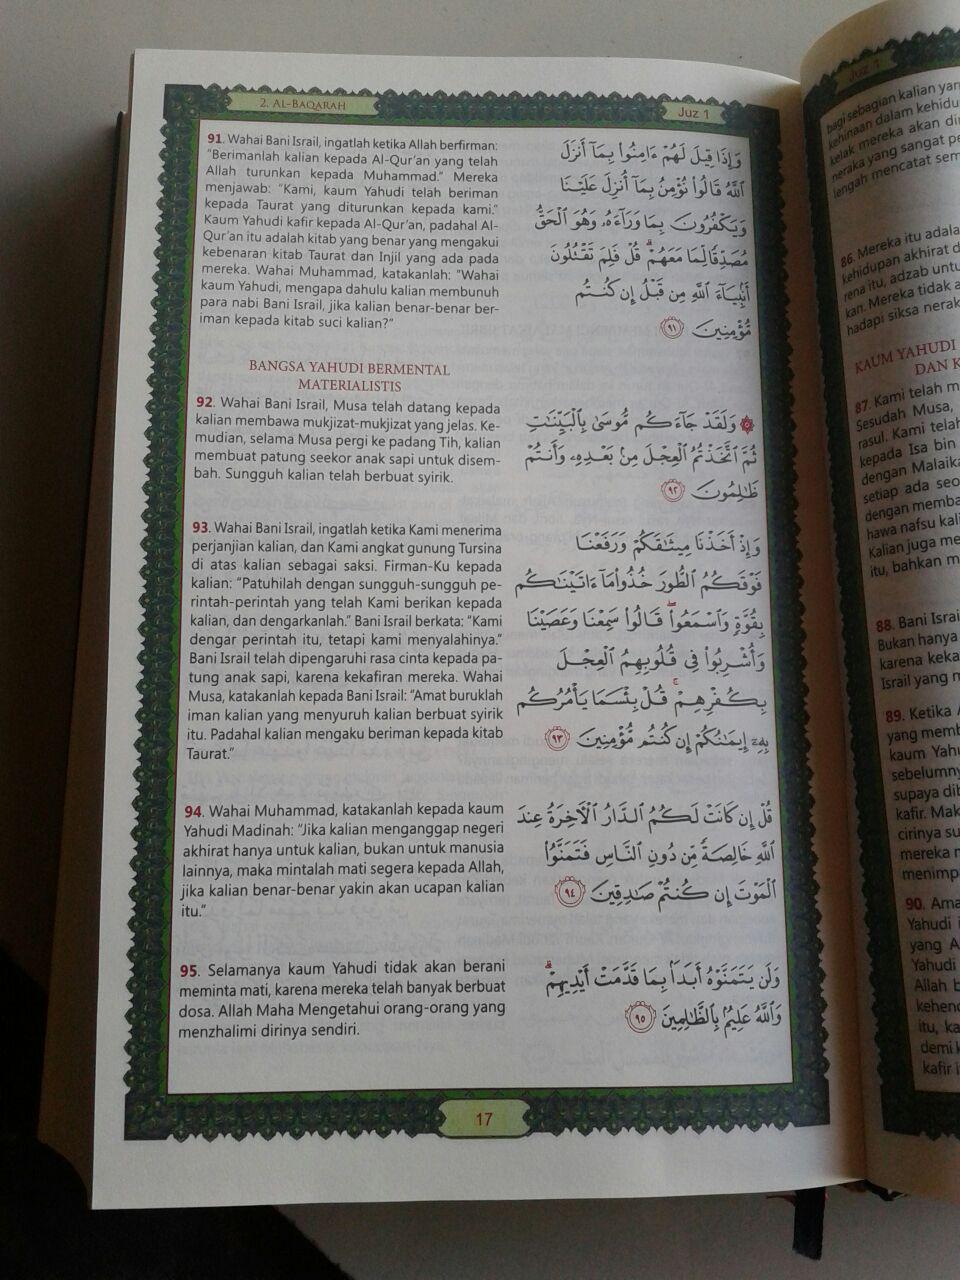 2. AL-BAQARAH
Juz 1
91. Wahai Bani Israil, ingatlah ketika Allah berfirman:
"Berimanlah kalian kepada Al-Qur'an yang telah
Allah turunkan kepada Muhammad." Mereka
menjawab: "Kami, kaum Yahudi telah beriman
kepada Taurat yang diturunkan kepada kami."
Kaum Yahudi kafir kepada Al-Qur'an, padahal Al-
Qur'an itu adalah kitab yang benar yang mengakui
kebenaran kitab Taurat dan Injil yang ada pada
mereka. Wahai Muhammad, katakanlah: "Wahai
kaum Yahudi, mengapa dahulu kalian membunuh
para nabi Bani Israil, jika kalian benar-benar ber-
iman kepada kitab suci kalian?"
وَإِذَا قِيلَ لَهُمْ ءَامِنُوا۟ بِمَآ أَنزَلَ
ٱللَّهُ قَالُوا۟ نُؤْمِنُ بِمَآ أُنزِلَ عَلَيْنَا
وَيَكْفُرُونَ بِمَا وَرَآءَهُۥ وَهُوَ ٱلْحَقُّ
مُصَدِّقًا لِّمَا مَعَهُمْ ۗ قُلْ فَلِمَ تَقْتُلُونَ
أَنۢبِيَآءَ ٱللَّهِ مِن قَبْلُ إِن كُنتُم
مُّؤْمِنِينَ ٩١
BANGSA YAHUDI BERMENTAL
MATERIALISTIS
92. Wahai Bani Israil, Musa telah datang kepada
kalian membawa mukjizat-mukjizat yang jelas. Ke-
mudian, selama Musa pergi ke padang Tih, kalian
membuat patung seekor anak sapi untuk disem-
bah. Sungguh kalian telah berbuat syirik.
۞ وَلَقَدْ جَآءَكُم مُّوسَىٰ بِٱلْبَيِّنَٰتِ
ثُمَّ ٱتَّخَذْتُمُ ٱلْعِجْلَ مِنۢ بَعْدِهِۦ وَأَنتُمْ
ظَٰلِمُونَ ٩٢
93. Wahai Bani Israil, ingatlah ketika Kami menerima
perjanjian kalian, dan Kami angkat gunung Tursina
di atas kalian sebagai saksi. Firman-Ku kepada
kalian: "Patuhilah dengan sungguh-sungguh pe-
rintah-perintah yang telah Kami berikan kepada
kalian, dan dengarkanlah." Bani Israil berkata: "Kami
dengar perintah itu, tetapi kami menyalahinya."
Bani Israil telah dipengaruhi rasa cinta kepada pa-
tung anak sapi, karena kekafiran mereka. Wahai
Musa, katakanlah kepada Bani Israil: "Amat buruklah
iman kalian yang menyuruh kalian berbuat syirik
itu. Padahal kalian mengaku beriman kepada kitab
Taurat."
وَإِذْ أَخَذْنَا مِيثَٰقَكُمْ وَرَفَعْنَا
فَوْقَكُمُ ٱلطُّورَ خُذُوا۟ مَآ ءَاتَيْنَٰكُم
بِقُوَّةٍ وَٱسْمَعُوا۟ ۖ قَالُوا۟ سَمِعْنَا وَعَصَيْنَا
وَأُشْرِبُوا۟ فِى قُلُوبِهِمُ ٱلْعِجْلَ
بِكُفْرِهِمْ ۚ قُلْ بِئْسَمَا يَأْمُرُكُم
بِهِۦٓ إِيمَٰنُكُمْ إِن كُنتُم مُّؤْمِنِينَ ٩٣
94. Wahai Muhammad, katakanlah kepada kaum
Yahudi Madinah: "Jika kalian menganggap negeri
akhirat hanya untuk kalian, bukan untuk manusia
lainnya, maka mintalah mati segera kepada Allah,
jika kalian benar-benar yakin akan ucapan kalian
itu."
قُلْ إِن كَانَتْ لَكُمُ ٱلدَّارُ ٱلْءَاخِرَةُ عِندَ
ٱللَّهِ خَالِصَةً مِّن دُونِ ٱلنَّاسِ فَتَمَنَّوُا۟
ٱلْمَوْتَ إِن كُنتُمْ صَٰدِقِينَ ٩٤
95. Selamanya kaum Yahudi tidak akan berani
meminta mati, karena mereka telah banyak berbuat
dosa. Allah Maha Mengetahui orang-orang yang
menzhalimi dirinya sendiri.
وَلَن يَتَمَنَّوْهُ أَبَدًۢا بِمَا قَدَّمَتْ أَيْدِيهِمْ ۗ
وَٱللَّهُ عَلِيمٌۢ بِٱلظَّٰلِمِينَ ٩٥
17
Juz 1
bagi sebagian kalian yan
kehinaan dalam kehidu
kelak mereka akan di
neraka yang sangat pe
lengah mencatat sem
86. Mereka itu adala
kehidupan akhirat d
rena itu, adzab untu
kan. Mereka tidak a
hadapi siksa nerak
KAUM YAHUDI
DAN K
87. Kami telah m
Sesudah Musa,
rasul. Kami telah
kepada Isa bin
dengan Malaika
setiap ada seo
dengan memba
hawa nafsu kali
Kalian juga me
itu, bahkan m
88. Bani Israi
Bukan hanya
karena keka
Israil yang m
89. Ketika A
yang memb
kaum Yahu
sebelumny
supaya dib
kafir. Mak
cirinya su
mereka m
menimp
90. Ama
Yahudi i
yang A
Yahudi
Allah b
kehend
itu, ka
demi k
kafir l